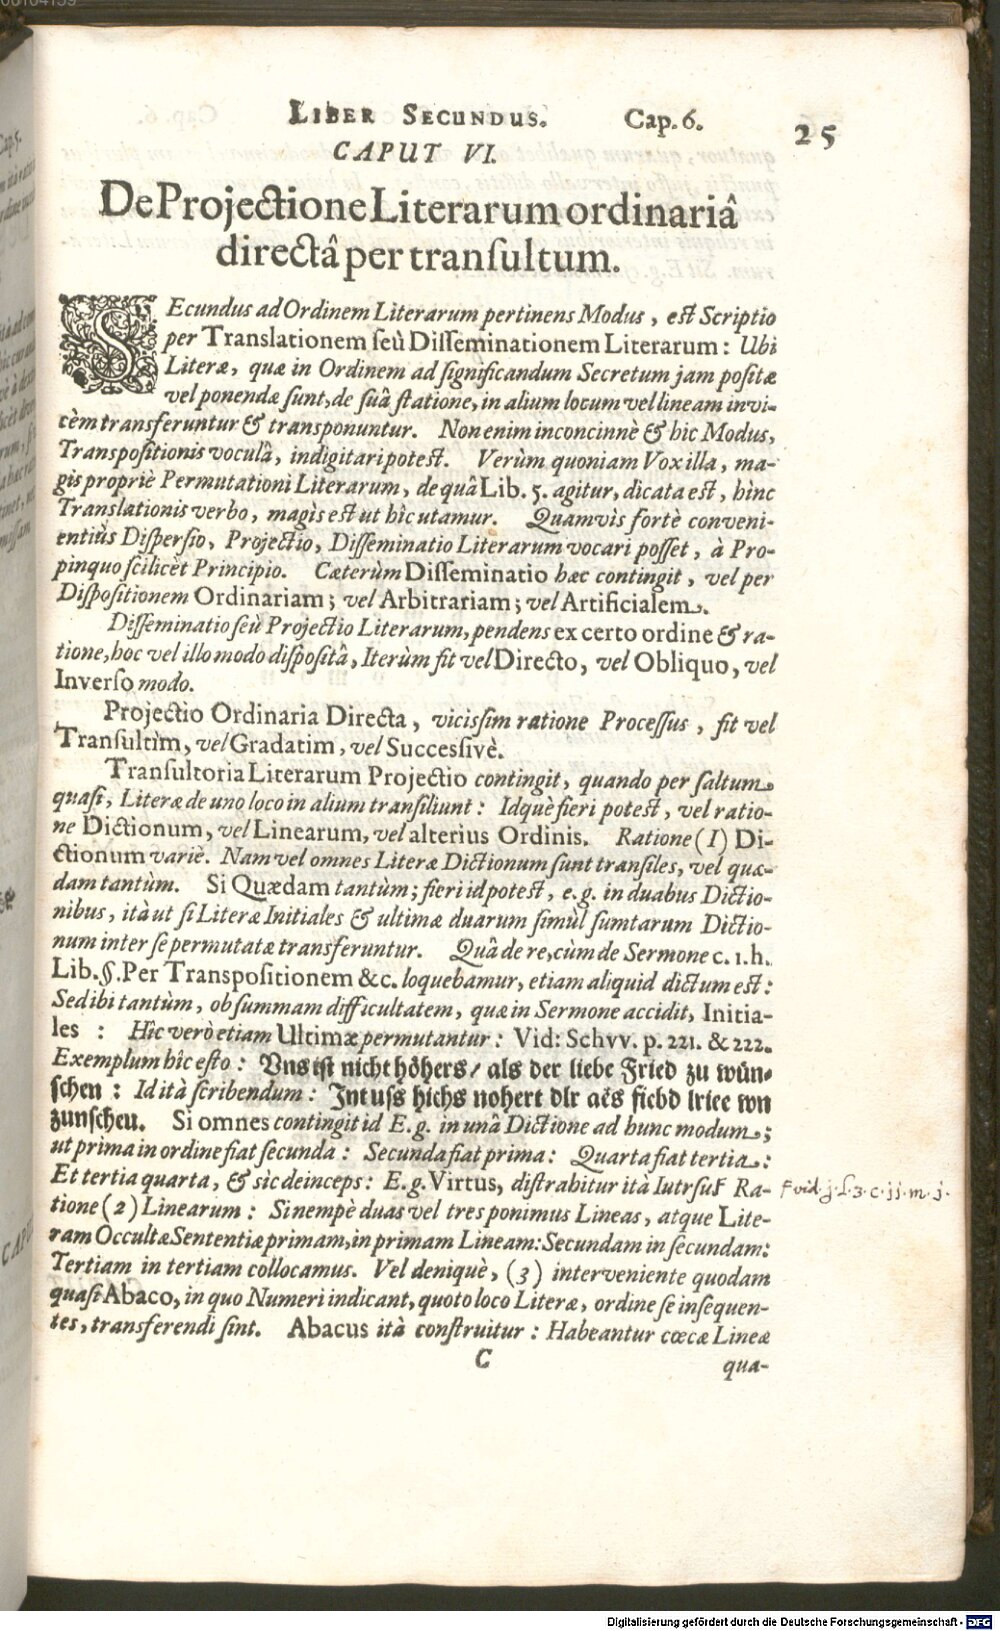 LIBER SECUNDUS. Cap. 6. 25
CAPUT VI.
De Projectione Literarum ordinariâ
directâ per transultum.
SEcundus ad Ordinem Literarum pertinens Modus, est Scriptio
per Translationem seù Disseminationem Literarum: Ubi
Literæ, quæ in Ordinem ad significandum Secretum jam positæ
vel ponendæ sunt, de suâ statione, in alium locum vel lineam invi-
cèm transferuntur & transponuntur. Non enim inconcinnè & hic Modus,
Transpositionis voculâ, indigitari potest. Verùm quoniam Vox illa, ma-
gis propriè Permutationi Literarum, de quâ Lib. 5. agitur, dicata est, hinc
Translationis verbo, magìs est ut hîc utamur. Quamvìs fortè conveni-
entiùs Dispersio, Projectio, Disseminatio Literarum vocari posset, à Pro-
pinquo scilicèt Principio. Cæterùm Disseminatio hæc contingit, vel per
Dispositionem Ordinariam; vel Arbitrariam; vel Artificialem.
Disseminatio seù Projectio Literarum, pendens ex certo ordine & ra-
tione, hoc vel illo modo dispositâ, Iterùm fit vel Directo, vel Obliquo, vel
Inverso modo.
Projectio Ordinaria Directa, vicissim ratione Processus, fit vel
Transultìm, vel Gradatim, vel Successivè.
Transultoria Literarum Projectio contingit, quando per saltum
quasi, Literæ de uno loco in alium transiliunt: Idquè fieri potest, vel ratio-
ne Dictionum, vel Linearum, vel alterius Ordinis. Ratione (1) Di-
ctionum variè. Nam vel omnes Literæ Dictionum sunt transiles, vel quæ-
dam tantùm. Si Quædam tantùm; fieri id potest, e.g. in duabus Dictio-
nibus, ità ut si Literæ Initiales & ultimæ duarum simùl sumtarum Dictio-
num inter se permutatæ transferuntur. Quâ de re, cùm de Sermone c. 1. h.
Lib. §. Per Transpositionem &c. loquebamur, etiam aliquid dictum est:
Sed ibi tantùm, ob summam difficultatem, quæ in Sermone accidit, Initia-
les : Hîc verò etiam Ultimæ permutantur: Vid: Schvv. p. 221. & 222.
Exemplum hîc esto: Vns ist nicht höhers/ als der liebe Fried zu wün-
schen: Id ità scribendum: Jnt uss hichs nohert dlr aës fiebd lriee wn
zunscheu. Si omnes contingit id E.g. in unâ Dictione ad hunc modum;
ut prima in ordine fiat secunda: Secunda fiat prima: Quarta fiat tertia:
Et tertia quarta, & sìc deinceps: E.g. Virtus, distrahitur ità Iutrsuf Ra- f vid. j. L. 3. c. jj. m. j.
tione (2) Linearum: Si nempè duas vel tres ponimus Lineas, atque Lite-
ram Occultæ Sententiæ primam, in primam Lineam: Secundam in secundam:
Tertiam in tertiam collocamus. Vel deniquè, (3) interveniente quodam
quasi Abaco, in quo Numeri indicant, quoto loco Literæ, ordine se insequen-
tes, transferendi sint. Abacus ità construitur: Habeantur cœcæ Lineæ
C qua-
Digitalisierung gefördert durch die Deutsche Forschungsgemeinschaft - DFG